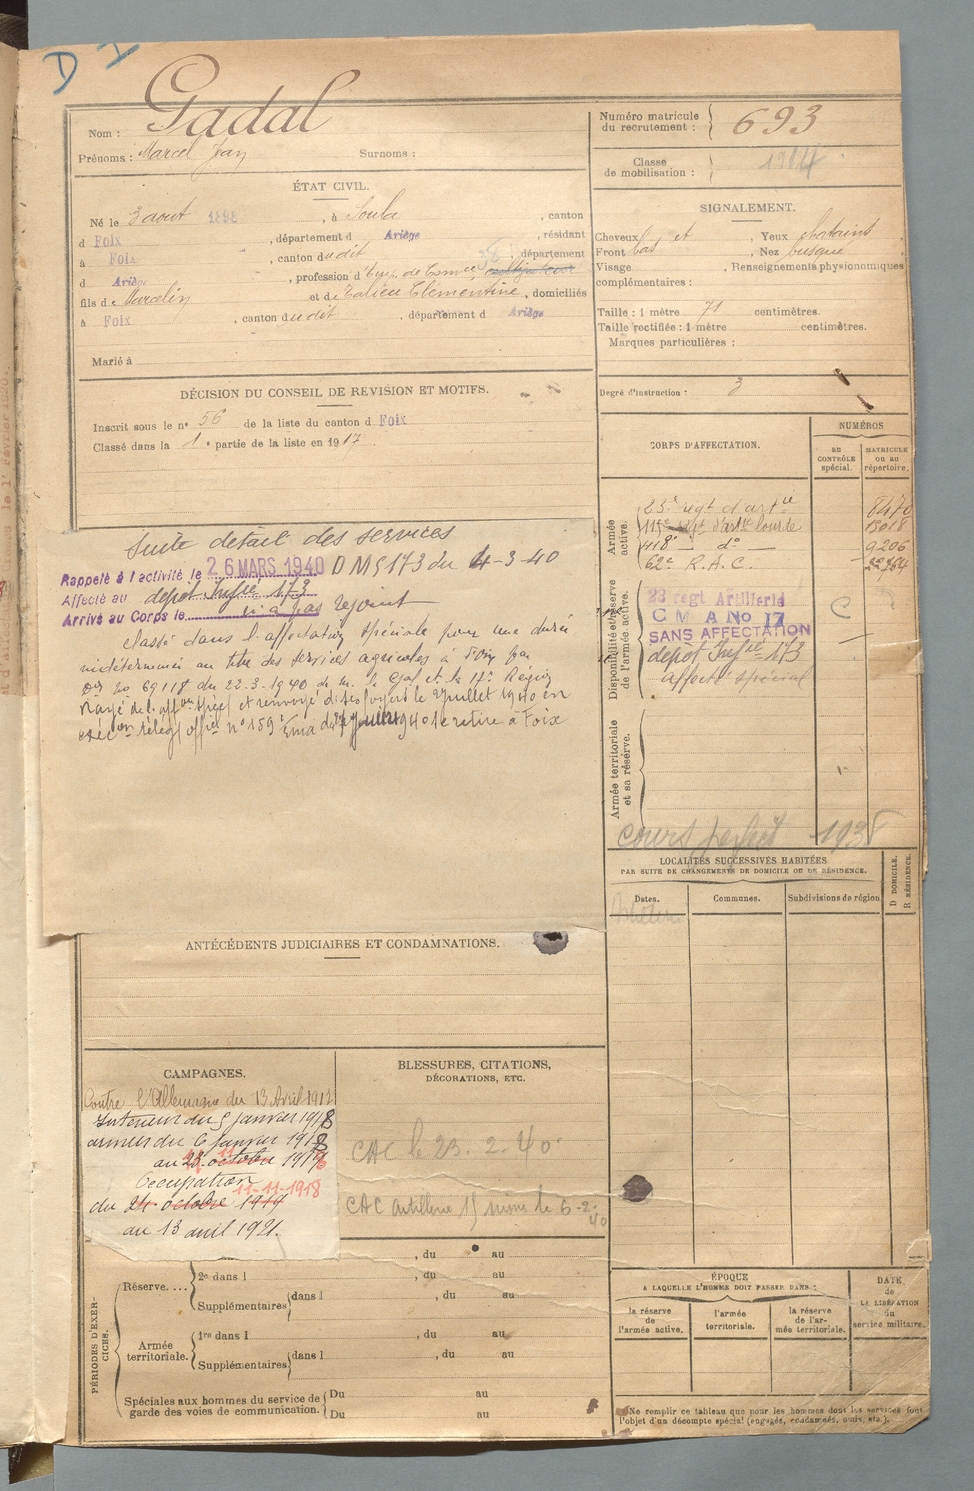 D I
Gadal
Nom :
Prénoms : Marcel Jean Surnoms :
Numéro matricule du recrutement : 693
Classe de mobilisation :
ÉTAT CIVIL.
Né le 3 aout 1898, à Soula, canton
d Foix, département d Ariège, résidant
à Foix, canton dudit, département
d Ariège, profession d'Emp. de Comce cultivateur
fils de Marcelin et de Clémentine, domiciliés
à Foix, canton dudit, département d Ariège
Marié à
SIGNALEMENT.
Cheveux et, Yeux chatains,
Front bas, Nez busqué,
Visage, Renseignements physionomiques
complémentaires :
Taille : 1 mètre 71 centimètres.
Taille rectifiée : 1 mètre centimètres.
Marques particulières :
Degré d'instruction : 3
DÉCISION DU CONSEIL DE REVISION ET MOTIFS.
Inscrit sous le n° 56 de la liste du canton d Foix
Classé dans la 1e partie de la liste en 1917
CORPS D'AFFECTATION.
NUMÉROS
au CONTRÔLE spécial.
MATRICULE ou au répertoire.
Armée active.
23e regt d'artie 8470
115e regt d'artie lourde 15018
418e d°  9206
62e R.A.C.
Disponibilité et réserve de l'armée active.
23 régt Artillerie C
C M A No 17
SANS AFFECTATION
depot Infie 173
affecté spécial
Armée territoriale et sa réserve.
Suite détail des services
Rappelé à l'activité le 26 MARS 1940 D M § 173 du 4-3-40
Affecté au depot Infie 173
Arrivé au Corps le n'a pas rejoint
Classé dans l'affectation spéciale pour une durée
indéterminée au titre des services agricoles à Foix par
no 69118 du 22.3.1940 de m. le Gal et la 17e Région
Rayé de l'affon spéc et renvoyé dans ses foyers le juillet 1940 en
télég offiel n° 159 Ema du juillet 1940 se retire à Foix
1938
LOCALITÉS SUCCESSIVES HABITÉES
PAR SUITE DE CHANGEMENTS DE DOMICILE OU DE RÉSIDENCE.
Dates.
Communes.
Subdivisions de région
D DOMICILE.
R RÉSIDENCE.
ANTÉCÉDENTS JUDICIAIRES ET CONDAMNATIONS.
CAMPAGNES.
Contre l'Allemagne du 13 Avril 191
Interieur du 5 janvier 1918
armées du 6 janvier 1918
au octobre 191
Occupation 11-11-1918
du 24 octobre 1919
au 13 avril 1921.
BLESSURES, CITATIONS,
DÉCORATIONS, ETC.
CAC le 23.2.40
CAC artillerie le 6-2-40
PÉRIODES D'EXERCICES.
, du au
Réserve.... 2e dans l , du au
Supplémentaires dans l , du au
Armée territoriale. 1re dans l , du au
Supplémentaires dans l , du au
Spéciales aux hommes du service de garde des voies de communication. Du au
Du au
ÉPOQUE
A LAQUELLE L'HOMME DOIT PASSER DANS :
la réserve de l'armée active.
l'armée territoriale.
la réserve de l'armée territoriale.
DATE de LA LIBÉRATION du service militaire.
Ne remplir ce tableau que pour les hommes dont les services font
l'objet d'un décompte spécial (engagés, condamnés, omis, etc.).